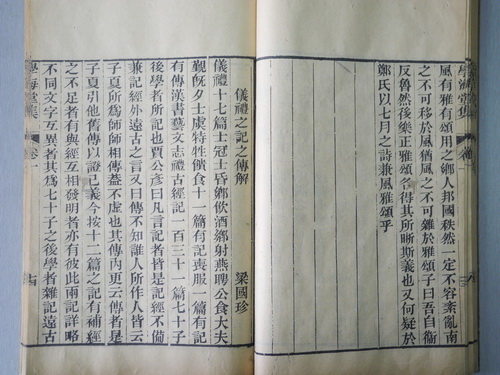 風有雅有頌用之鄉人邦國秩然一定不容紊亂南
之不可移於風猶風之不可雜於雅頌子曰吾自衛
反魯然後樂正雅頌各得其所晰斯義也又何疑於
鄭氏以七月之詩兼風雅頌乎
儀禮之記之傳解
梁國珍
儀禮十七篇士冠士昏鄉飲酒鄉射燕聘公食大夫
覲既夕士虞特牲饋食十一篇有記喪服一篇有記
有傳漢書藝文志禮古經記一百三十一篇七十子
後學者所記也賈公彥曰凡言記者皆是記經不備
兼記經外遠古之言又曰傳不知誰人所作人皆云
子夏所為師師相傳蓋不虛也其傳內更云傳者是
子夏引他舊傳以證己義今按十二篇之記有補經
之不足者有與經互相發明者亦有彼此兩記詳略
不同文字互異者其為七十子之後學者雜記遠古
學海堂集
卷一